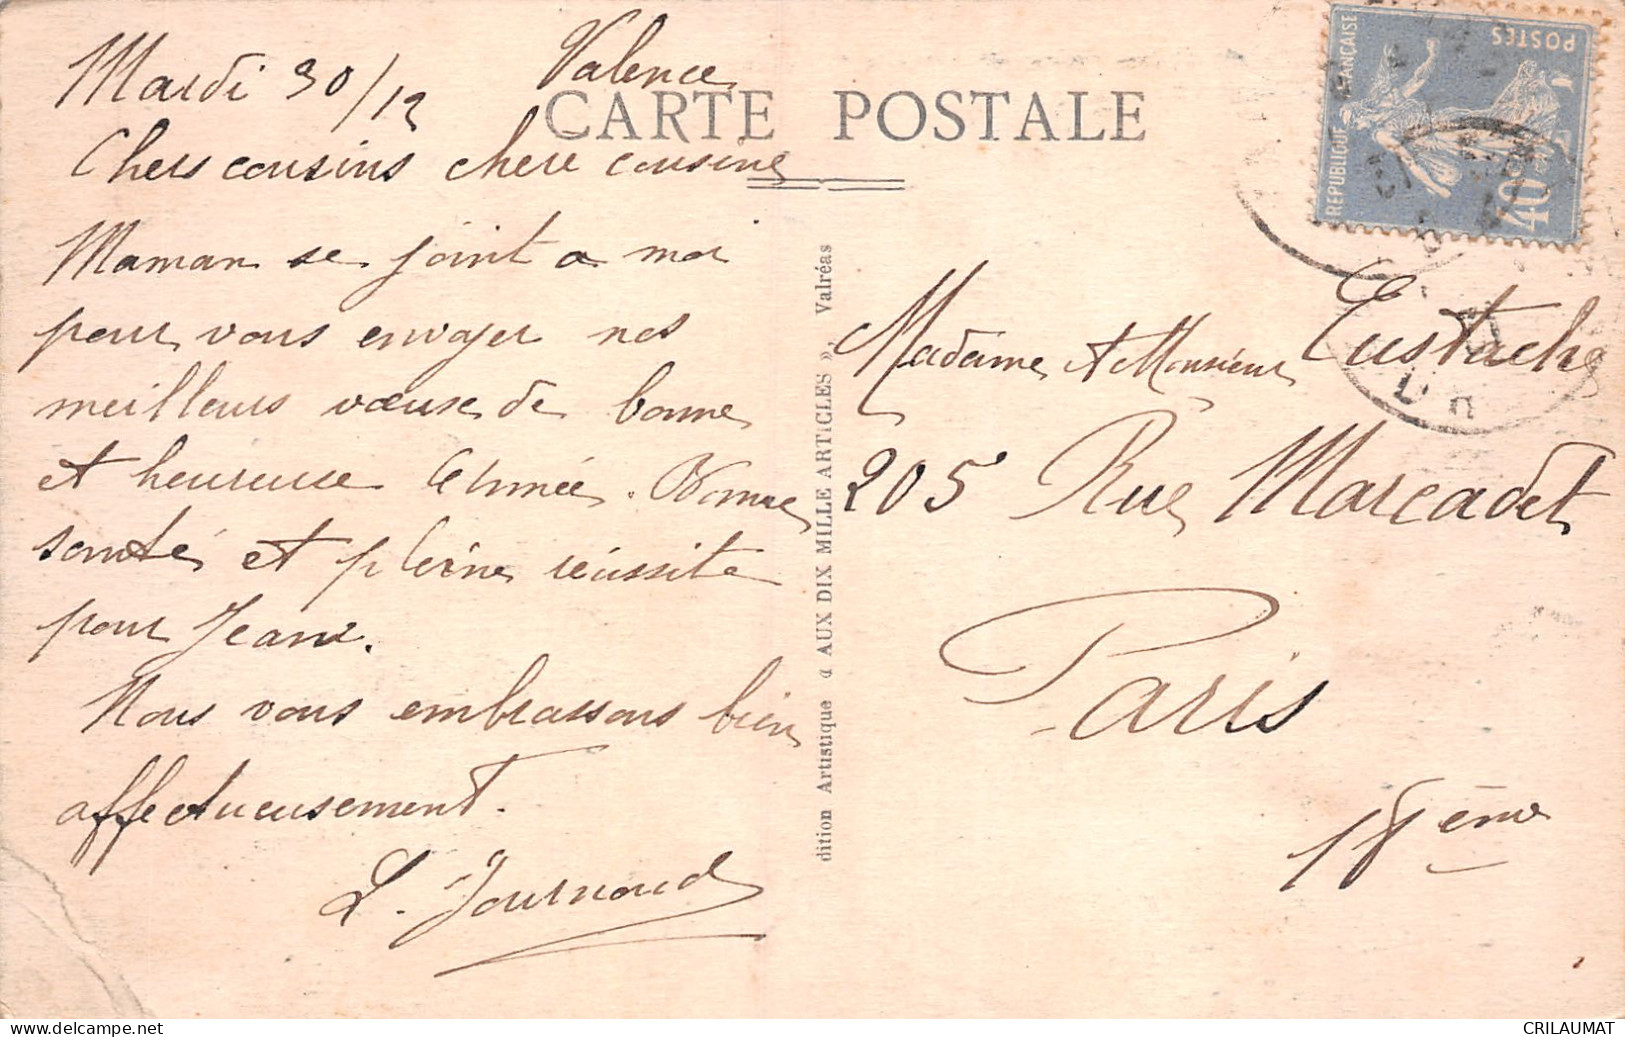 Mardi 30/12 Valence
CARTE POSTALE
Chers cousins chere cousine
Maman se joint a moi
pour vous envoyer nos
meilleurs vœux de bonne
et heureuse année. Bonne
santé et pleine réussite
pour Jean.
Nous vous embrassons bien
affectueusement.
L. Journaud
dition Artistique « AUX DIX MILLE ARTICLES », Valréas
REPUBLIQUE FRANÇAISE
POSTES
40 c
Madame et Monsieur Eustache
205 Rue Marcadet
Paris
18ème
CRILAUMAT